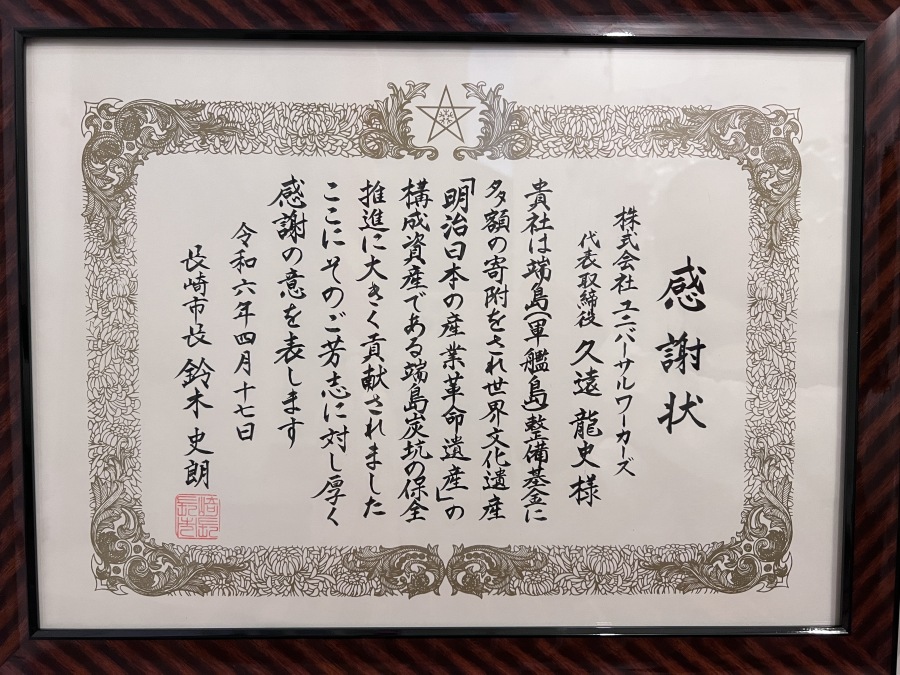 感謝状
株式会社 ユニバーサルワーカーズ
代表取締役 久遠 龍史 様
貴社は端島(軍艦島)整備基金に
多額の寄附をされ世界文化遺産
「明治日本の産業革命遺産」の
構成資産である端島炭坑の保全
推進に大きく貢献されました
ここにそのご芳志に対し厚く
感謝の意を表します
令和六年四月十七日
長崎市長 鈴木 史朗